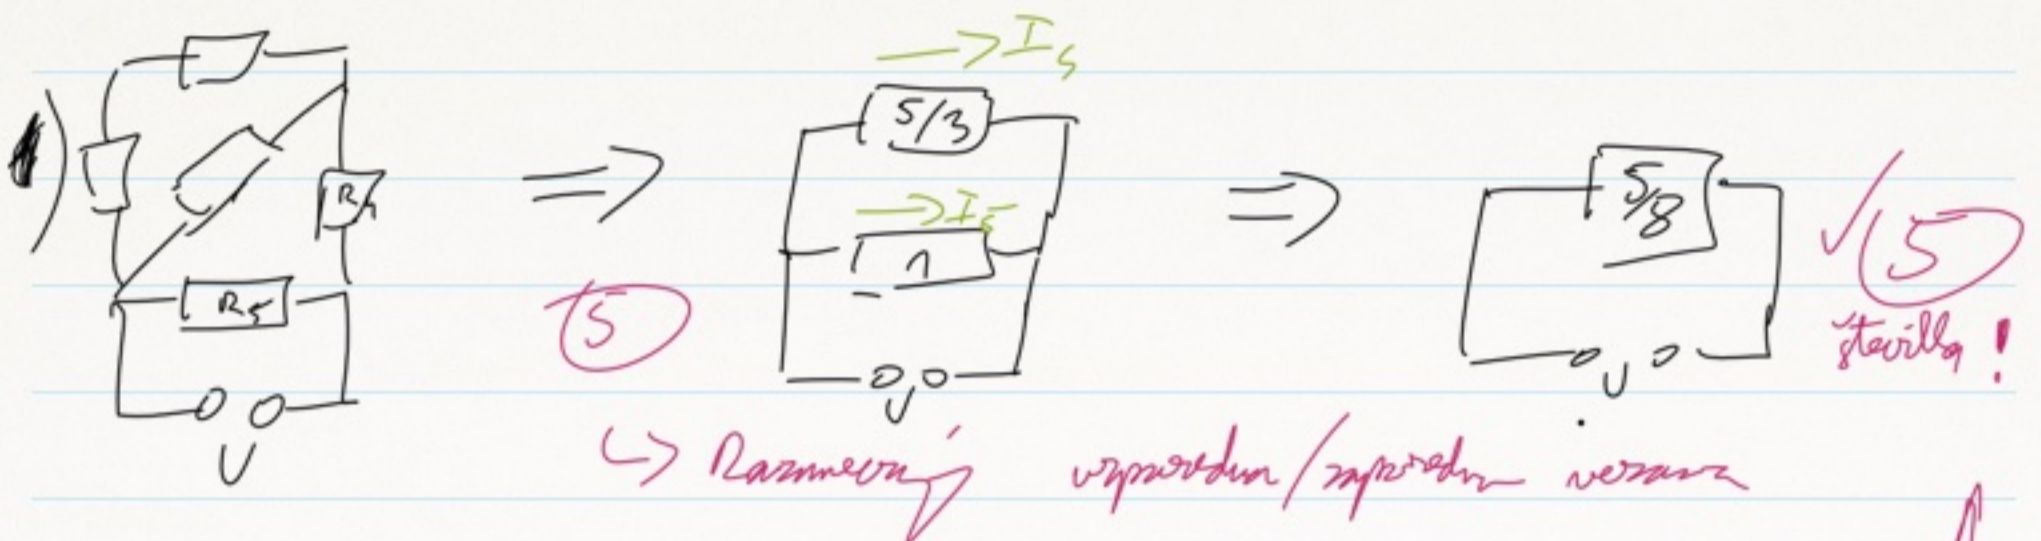 1)
R4
R5
U
5
5/3
I4
1
I5
U
5/8
U
✓ 5
števila!
↳ Razumevanj vzporedna/zaporedna vezava